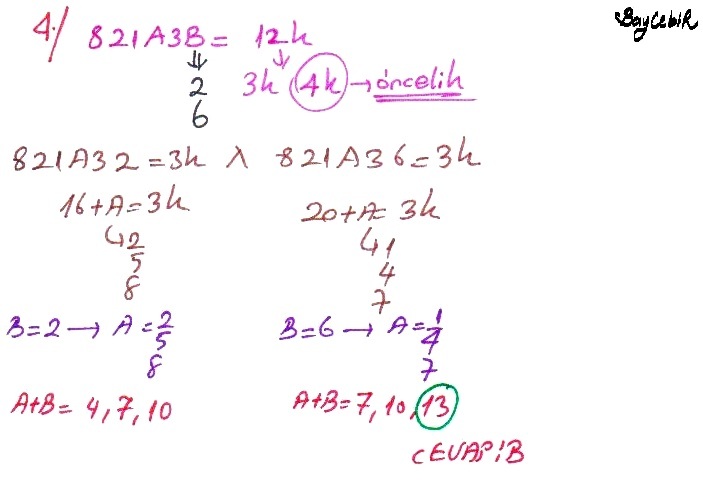 BayCebiR
4·/ 821A3B = 12k
⇓ ↓
2 3k 4k → öncelik
6
821A32 = 3k λ 821A36 = 3k
16+A = 3k 20+A = 3k
↳ 2 ↳ 1
5 4
8 7
B=2 → A = 2 B=6 → A = 1
5 4
8 7
A+B = 4, 7, 10 A+B = 7, 10, 13
CEVAP:B